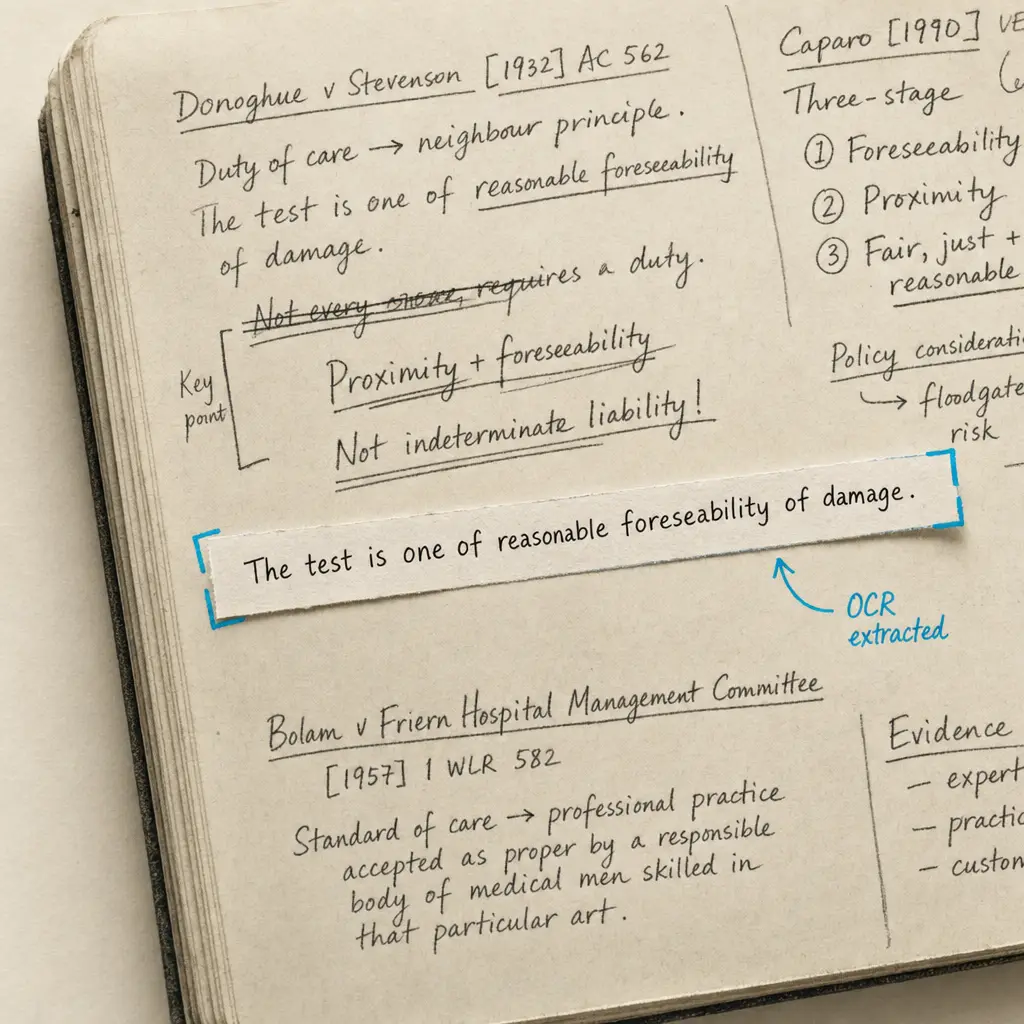 Donoghue v Stevenson [1932] AC 562
Duty of care → neighbour principle.
The test is one of reasonable foreseeability
of damage.
Not every requires a duty.
Key
point
Proximity + foreseeability
Not indeterminate liability!
Caparo [1990]
Three-stage
① Foreseeability
② Proximity
③ Fair, just +
reasonable
Policy
→ floodgate
risk
The test is one of reasonable foreseability of damage.
OCR
extracted
Bolam v Friern Hospital Management Committee
[1957] 1 WLR 582
Standard of care → professional practice
accepted as proper by a responsible
body of medical men skilled in
that particular art.
Evidence
— expert
—
—